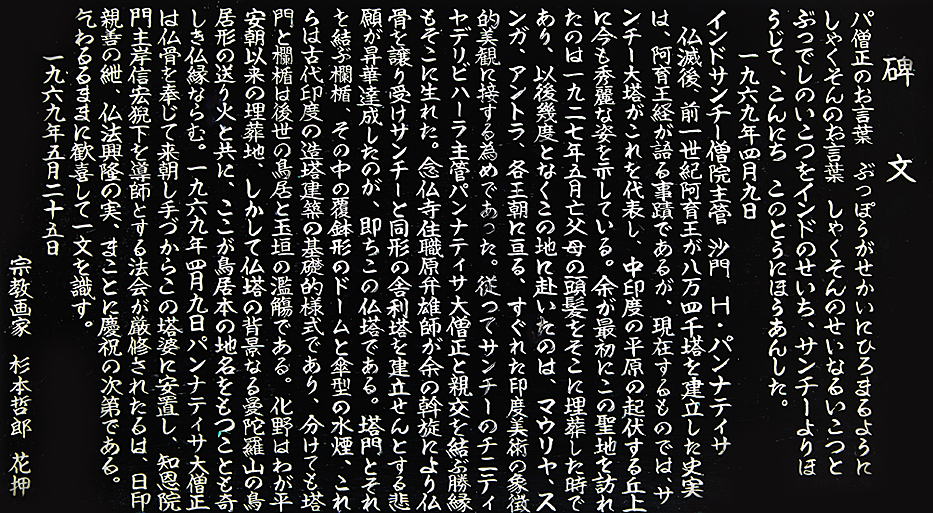 碑文
パ僧正のお言葉　ぶっぽうがせかいにひろまるように
しゃくそんのお言葉　しゃくそんのせいなるいこつと
ぶつでしのいこつをインドのせいち、サンチーよりほ
うじて、こんにち　このとうにほうあんした。
一九六九年四月九日
インドサンチー僧院主管　沙門　H・パンナティサ
仏滅後、前一世紀阿育王が八万四千塔を建立した史実
は、阿育王経が語る事蹟であるが、現在するものでは、サ
ンチー大塔がこれを代表し、中印度の平原の起伏する丘上
に今も秀麗な姿を示している。余が最初にこの聖地を訪れ
たのは一九二七年五月亡父母の頭髪をそこに埋葬した時で
あり、以後幾度となくこの地に赴いたのは、マウリヤ、ス
ンガ、アントラ、各王朝に亘る、すぐれた印度美術の象徴
的美観に接する為めであった。従ってサンチーのチニティ
ヤデリビハーラ主管パンナティサ大僧正と親交を結ぶ勝縁
もそこに生れた。念仏寺住職原弁雄師が余の斡旋により仏
骨を譲り受けサンチーと同形の舎利塔を建立せんとする悲
願が昇華達成したのが、即ちこの仏塔である。塔門とそれ
を結ぶ欄楯　その中の覆鉢形のドームと傘型の水煙、これ
らは古代印度の造塔建築の基礎的様式であり、分けても塔
門と欄楯は後世の鳥居と玉垣の濫觴である。化野はわが平
安朝以来の埋葬地、しかして仏塔の背景なる曼陀羅山の鳥
居形の送り火と共に、ここが鳥居本の地名をもつことも奇
しき仏縁ならむ。一九六九年四月九日パンナティサ大僧正
は仏骨を奉じて来朝し手づからこの塔婆に安置し、知恩院
門主岸信宏猊下を導師とする法会が厳修されたるは、日印
親善の紲、仏法興隆の実、まことに慶祝の次第である。
乞わるるままに歓喜して一文を識す。
一九六九年五月二十五日
宗教画家　杉本哲郎　花押